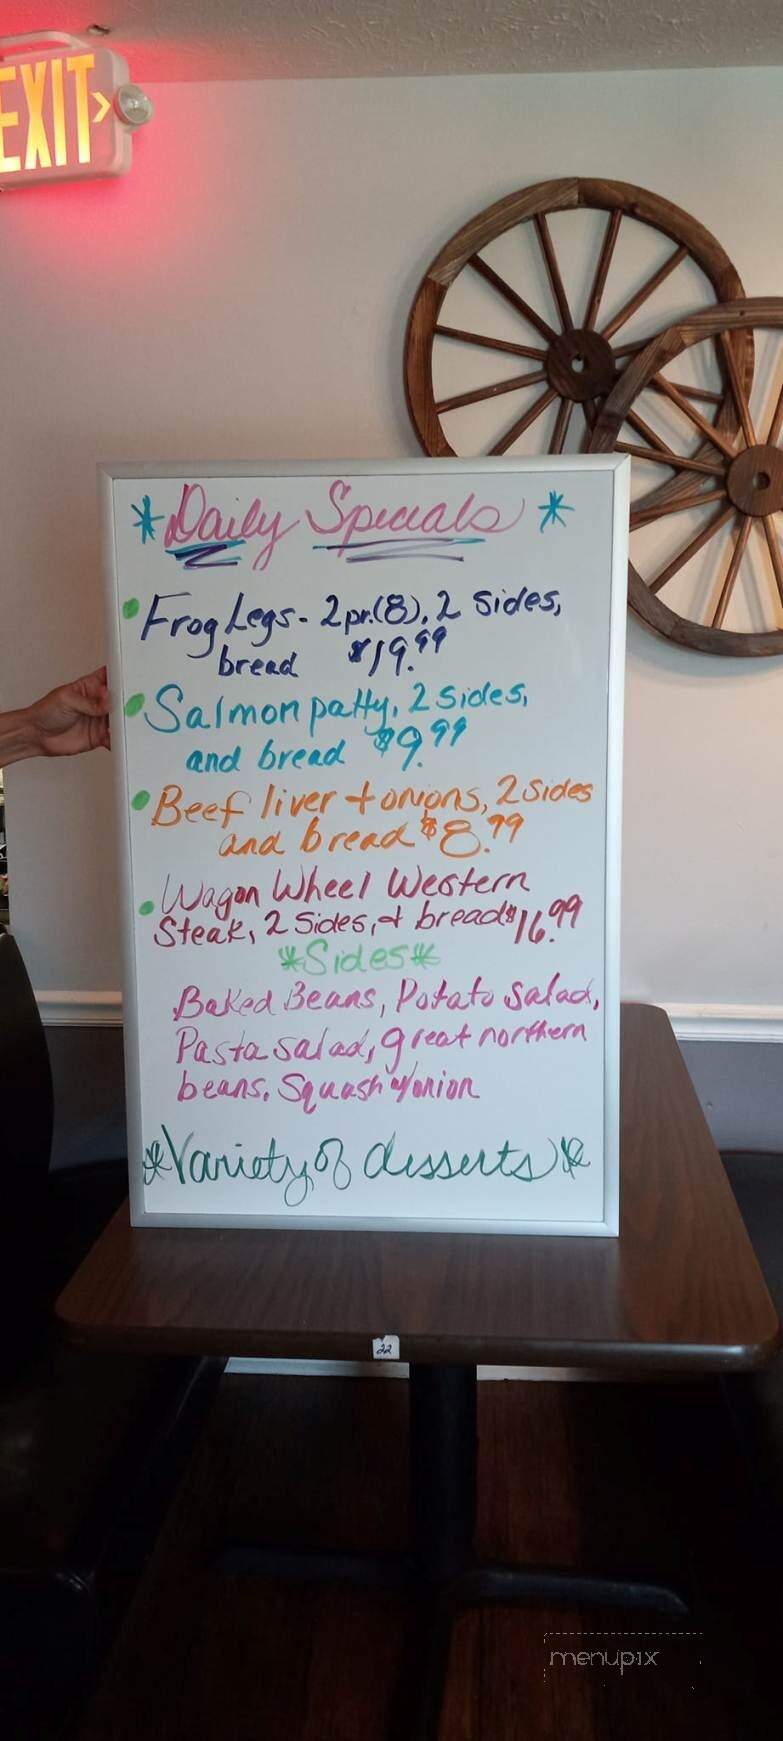 EXIT
*Daily Specials*
Frog Legs - 2pr.(8), 2 Sides,
bread $19.99
Salmon patty, 2 sides,
and bread $9.99
Beef liver + onions, 2 sides
and bread $8.99
Wagon Wheel Western
Steak, 2 Sides, + bread $16.99
*Sides*
Baked Beans, Potato Salad,
Pasta salad, great northern
beans, Squash w/onion
*Variety of desserts*
22
menupix